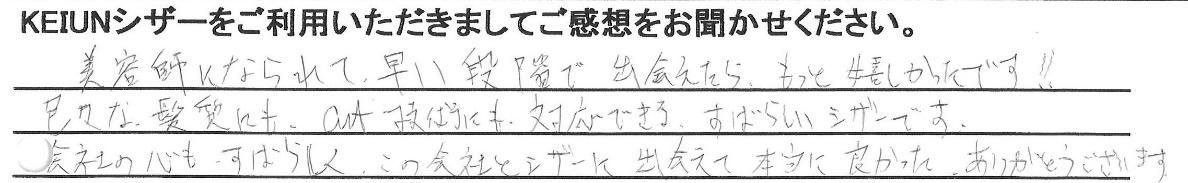 KEIUNシザーをご利用いただきましてご感想をお聞かせください。
美容師になられて、早い段階で 出会えたら、もっと嬉しかったです!!
色々な、髪質にも、cut 技法にも、対応できる、すばらしいシザーです。
会社の心も、すばらしく、この会社とシザーに 出会えて 本当に 良かった、ありがとうございます